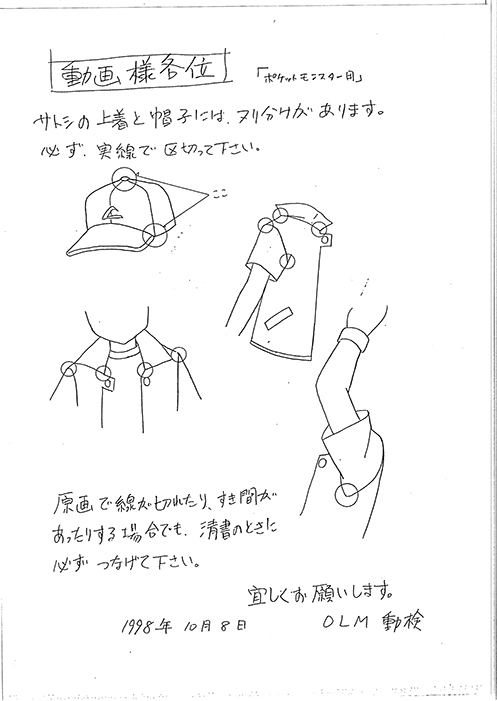 動画様各位
「ポケットモンスター用」
サトシの上着と帽子には、ヌリ分けがあります。
必ず、実線で区切って下さい。
ここ
原画で線が切れたり、すき間が
あったりする場合でも、清書のときに
必ずつなげて下さい。
宜しくお願いします。
1998年10月8日
OLM 動検